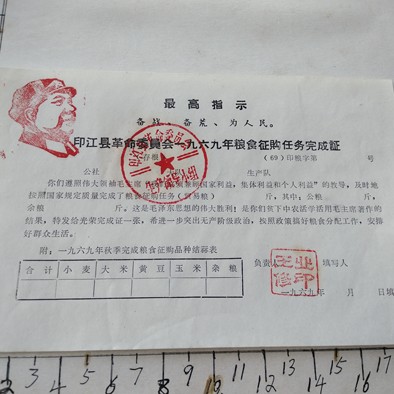 最高指示
备战、备荒、为人民。
印江县革命委员会一九六九年粮食征购任务完成证
存根 （69）印粮字第 号
公社 生产队
你们遵照伟大领袖毛主席 兼顾国家利益，集体利益和个人利益”的教导，及时地
按照国家规定质量完成了粮食征购任务（贸易粮） 斤，其中：公粮 斤，
余粮 斤。这是毛泽东思想的伟大胜利；是你们贫下中农活学活用毛主席著作的
结果，特发给光荣完成证一张，希进一步突出无产阶级政治，按照政策搞好粮食分配工作，安排
好群众生活。
附：一九六九年秋季完成粮食征购品种结算表
负责人 填写人
合计 小麦 大米 黄豆 玉米 杂粮
一九六九年 月 日填
2 3 4 5 6 7 8 9 10 11 12 13 14 15 16 17